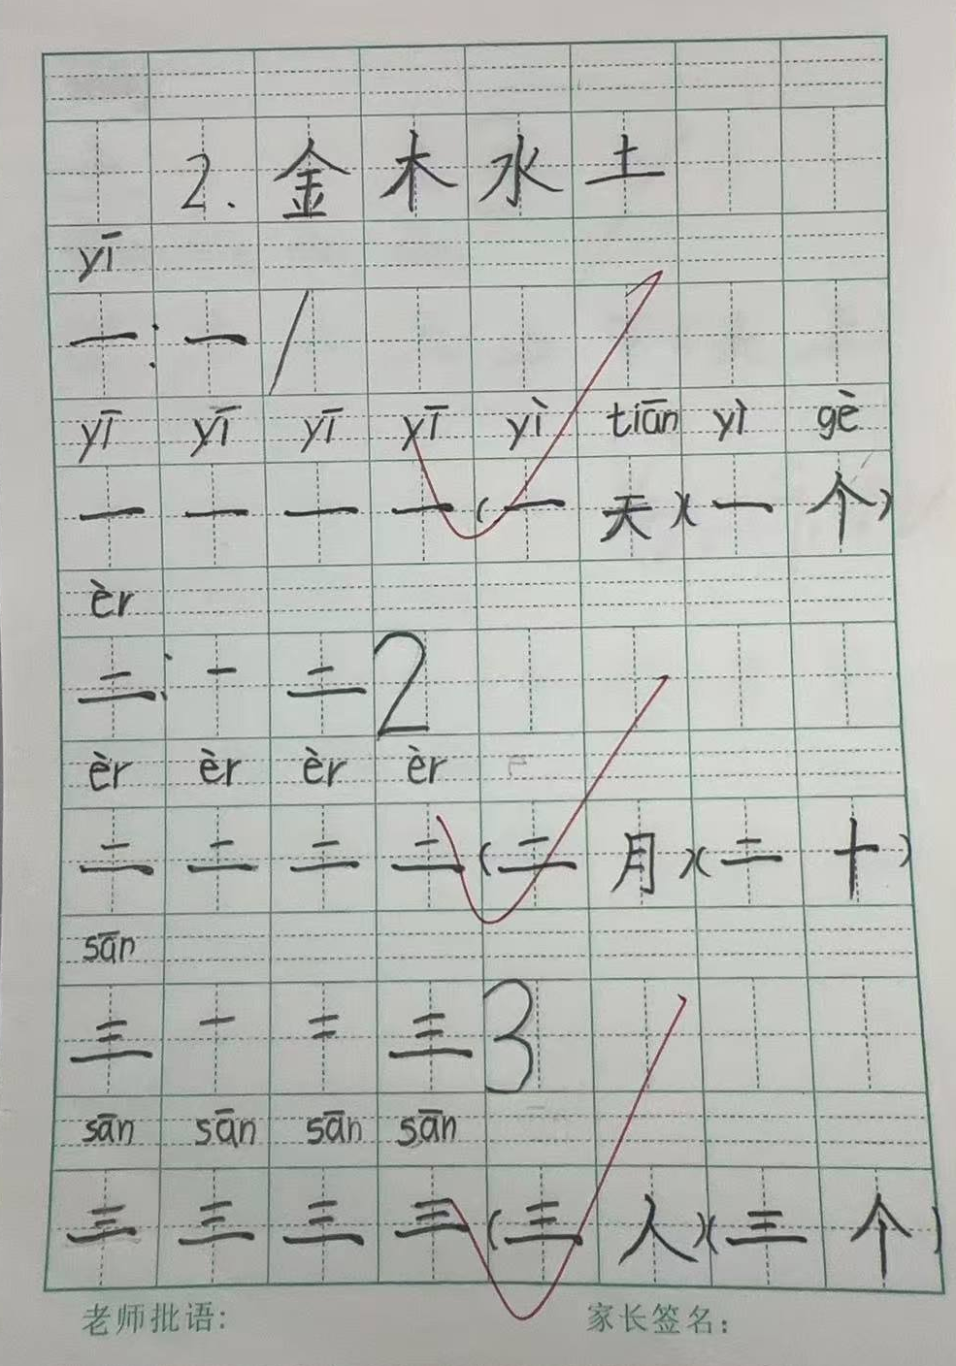 2. 金木水土
yī
一: 一 /
yī yī yī yī yì tiān yì gè
一 一 一 一 (一天)(一个)
èr
二: 一 二 2
èr èr èr èr
二 二 二 二 (二月)(二十)
sān
三 一 二 三 3
sān sān sān sān
三 三 三 三 (三人)(三个)
老师批语: 家长签名: